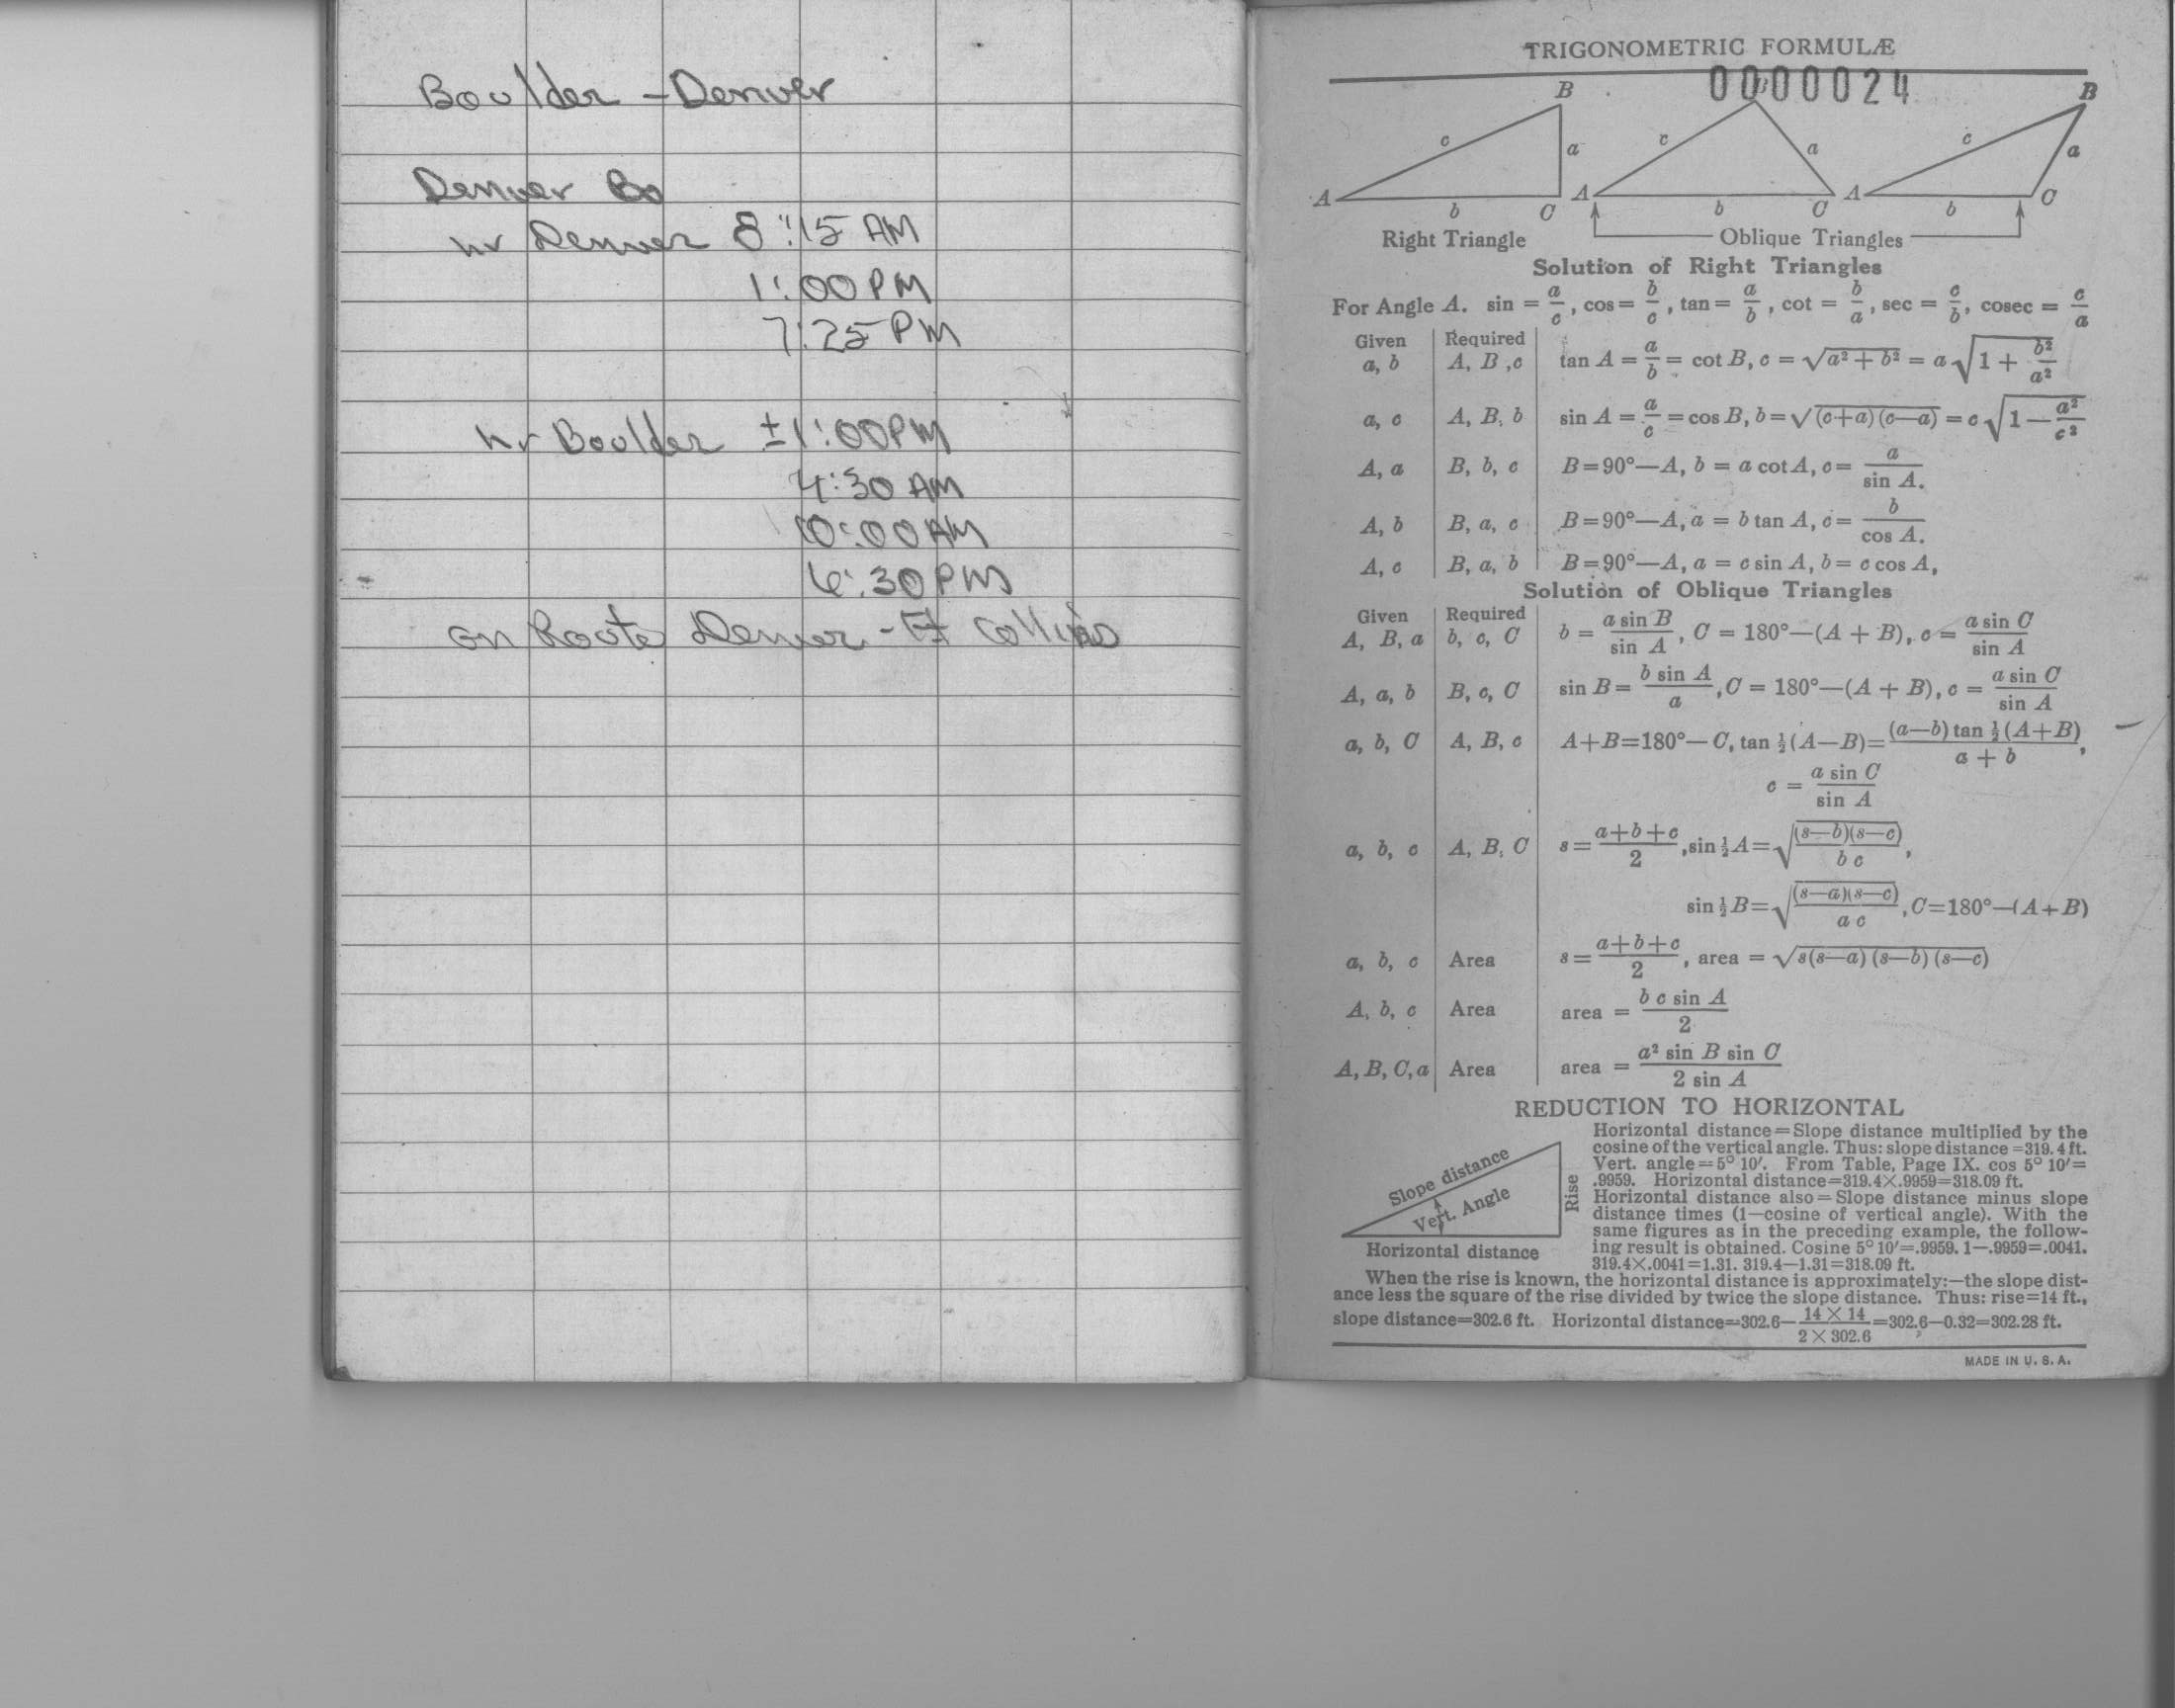 Boulder - Denver
Denver Bo
Denver 8:15 AM
1:00 PM
7:25 PM
Boulder ±1:00PM
4:30 AM
10:00 AM
6:30 PM
on Route Denver - Ft Collins
TRIGONOMETRIC FORMULÆ
0000024
B B B
c a c a c a
A b C A b C A b C
Right Triangle Oblique Triangles
Solution of Right Triangles
For Angle A. sin = a/c, cos = b/c, tan = a/b, cot = b/a, sec = c/b, cosec = c/a
Given Required
a, b A, B, c tan A = a/b = cot B, c = √(a² + b²) = a √(1 + b²/a²)
a, c A, B, b sin A = a/c = cos B, b = √((c+a)(c—a)) = c √(1 — a²/c²)
A, a B, b, c B=90°—A, b = a cot A, c = a/sin A.
A, b B, a, c B=90°—A, a = b tan A, c = b/cos A.
A, c B, a, b B=90°—A, a = c sin A, b = c cos A,
Solution of Oblique Triangles
Given Required
A, B, a b, c, C b = a sin B/sin A, C = 180°—(A + B), c = a sin C/sin A
A, a, b B, c, C sin B = b sin A/a, C = 180°—(A + B), c = a sin C/sin A
a, b, C A, B, c A+B=180°—C, tan ½(A—B)= (a—b) tan ½(A+B)/a + b,
c = a sin C/sin A
a, b, c A, B, C s = a+b+c/2, sin ½A = √((s—b)(s—c)/b c),
sin ½B = √((s—a)(s—c)/a c), C=180°—(A+B)
a, b, c Area s = a+b+c/2, area = √(s(s—a)(s—b)(s—c))
A, b, c Area area = b c sin A/2
A, B, C, a Area area = a² sin B sin C/2 sin A
REDUCTION TO HORIZONTAL
Slope distance
Vert. Angle
Rise
Horizontal distance
Horizontal distance=Slope distance multiplied by the
cosine of the vertical angle. Thus: slope distance =319.4 ft.
Vert. angle=5° 10′. From Table, Page IX. cos 5° 10′=
.9959. Horizontal distance=319.4×.9959=318.09 ft.
Horizontal distance also=Slope distance minus slope
distance times (1—cosine of vertical angle). With the
same figures as in the preceding example, the follow-
ing result is obtained. Cosine 5° 10′=.9959. 1—.9959=.0041.
319.4×.0041=1.31. 319.4—1.31=318.09 ft.
When the rise is known, the horizontal distance is approximately:—the slope dist-
ance less the square of the rise divided by twice the slope distance. Thus: rise=14 ft.,
slope distance=302.6 ft. Horizontal distance=302.6— 14 × 14/2 × 302.6 =302.6—0.32=302.28 ft.
MADE IN U. S. A.